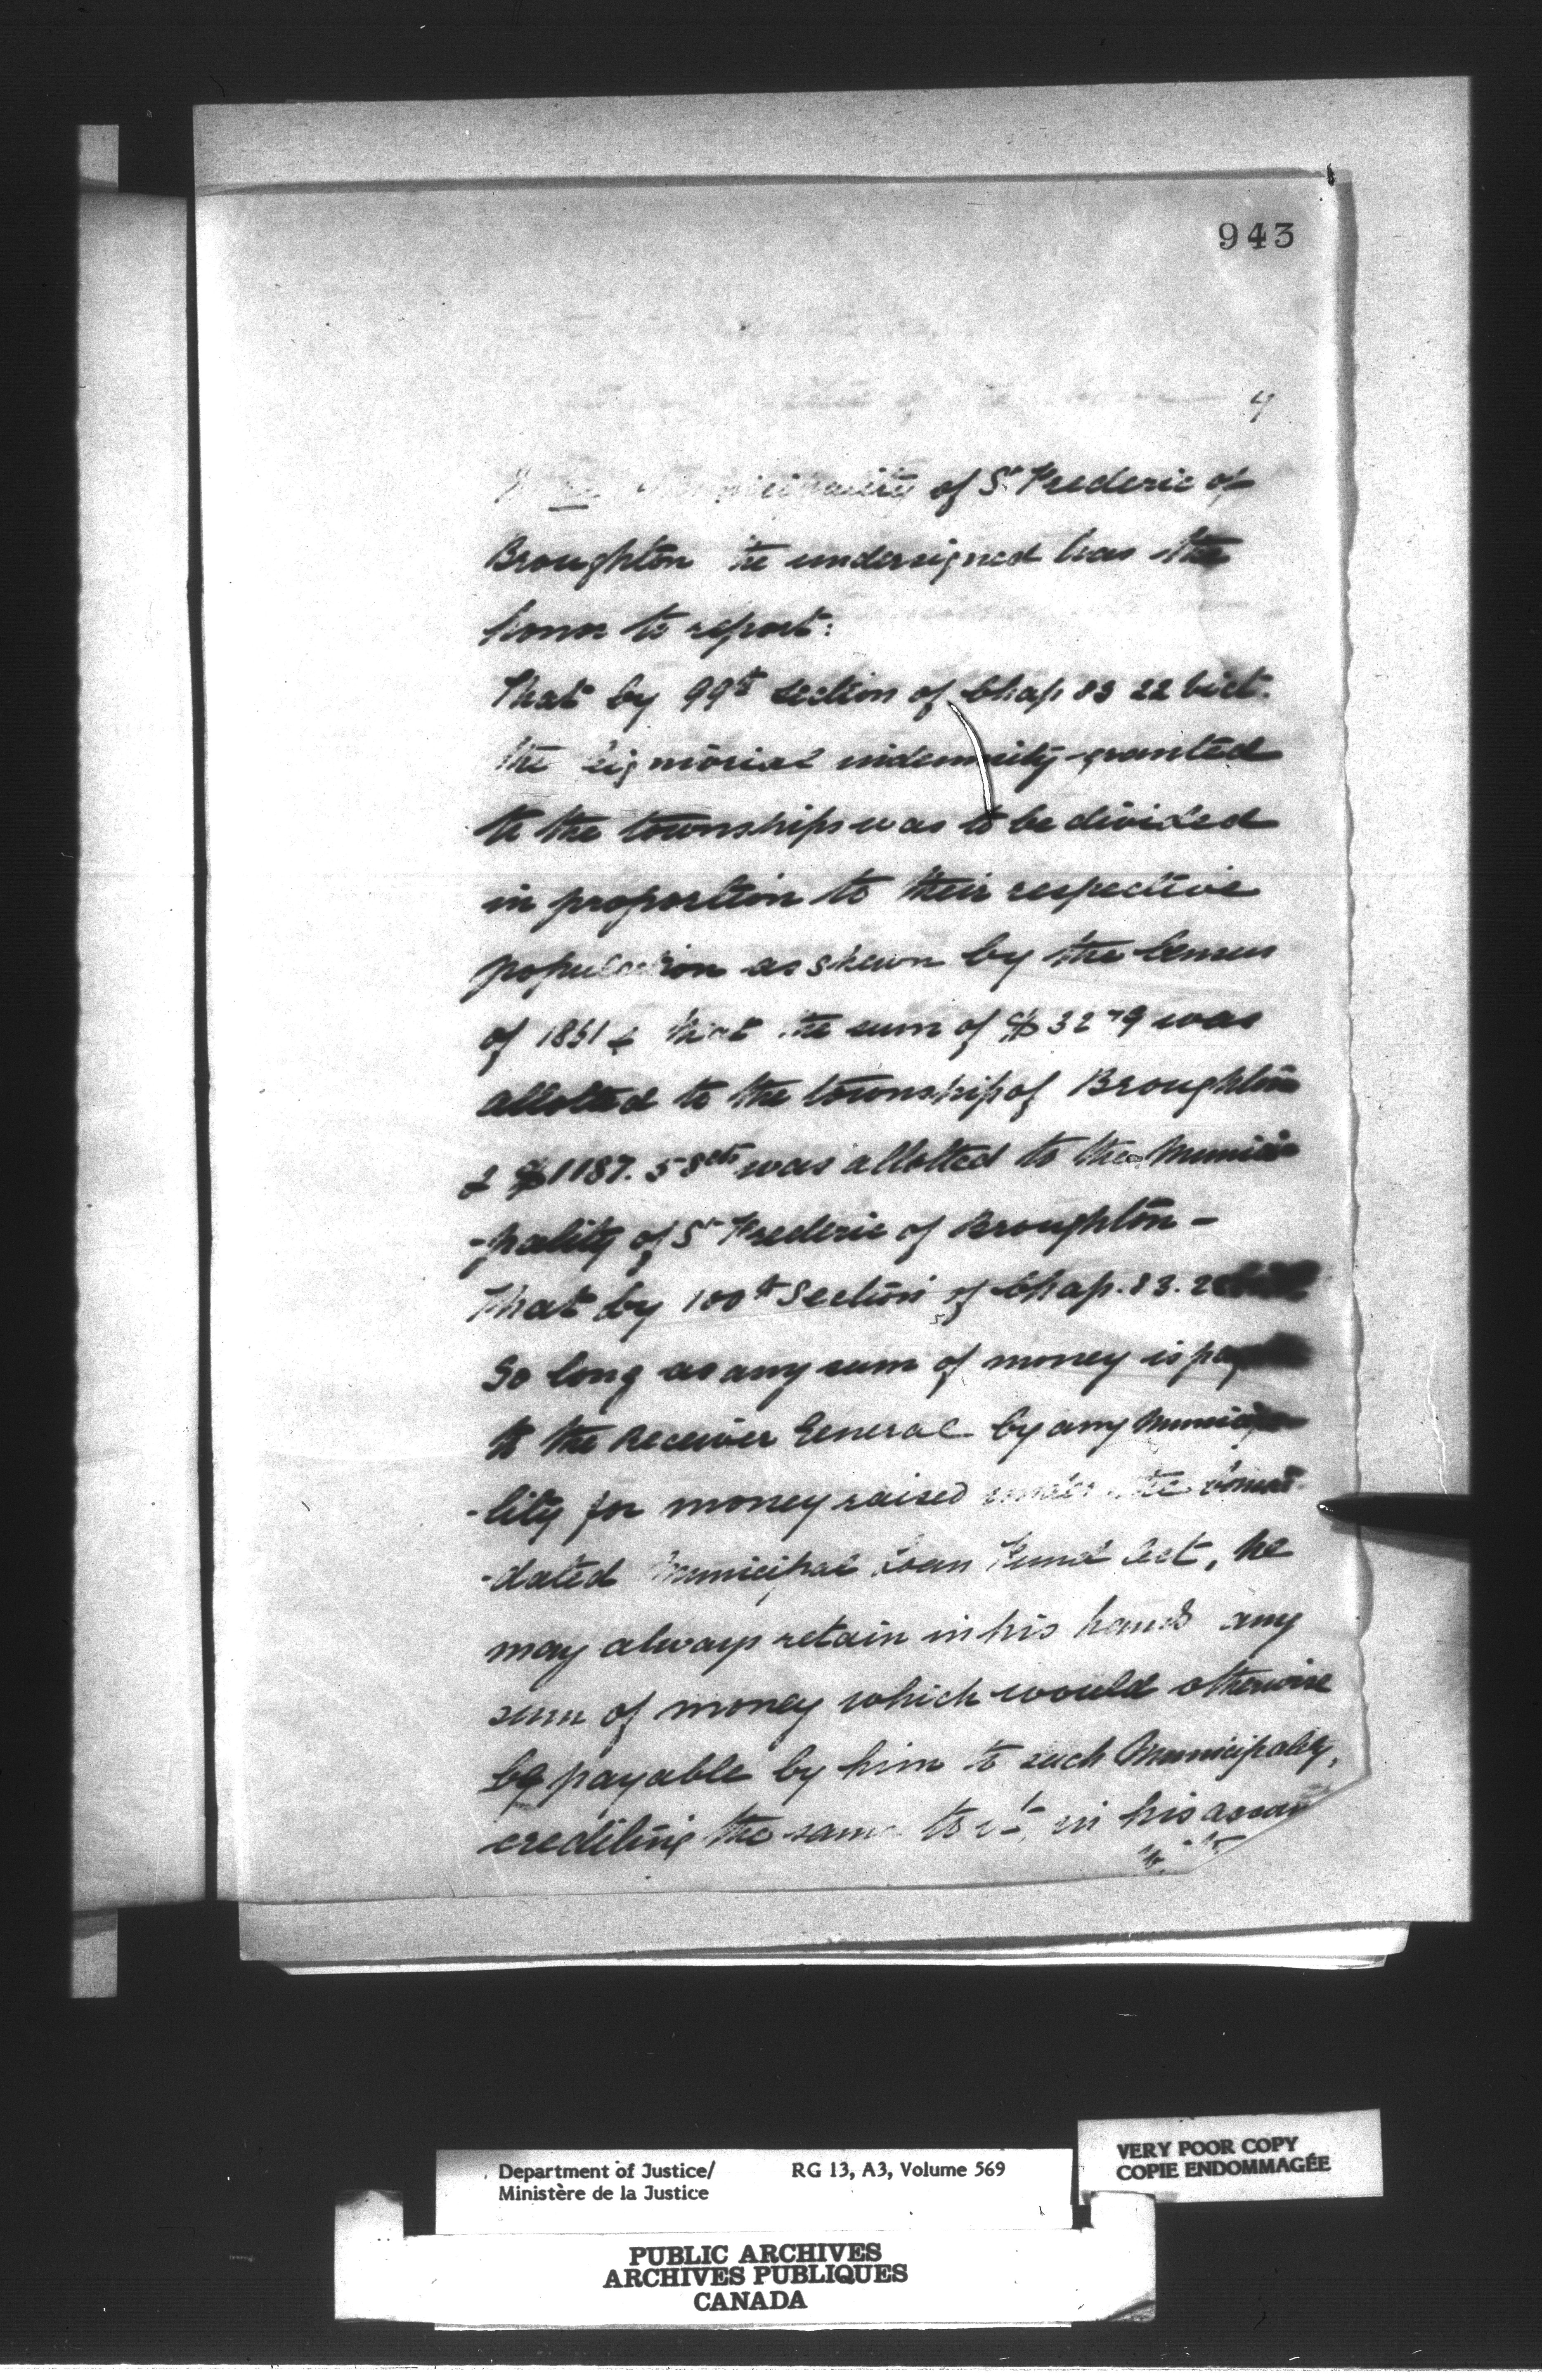 943
4
Municipality of St Frederic of
Broughton the undersigned has the
honor to report:
That by 99th Section of Chap 83 22 Vict.
the Signiorial indemnity granted
to the townships was to be divided
in proportion to their respective
population as shewn by the Census
of 1851 & that the sum of $3279 was
allotted to the township of Broughton
& $1187.58cts was allotted to the Munici
-pality of St Frederic of Broughton -
That by 100th Section of Chap. 83. 22
So long as any sum of money is
to the Receiver General by any Municipa
-lity for money raised under the
-dated Municipal Loan Fund Act, he
may always retain in his hands any
sum of money which would otherwise
be payable by him to such Municipality,
crediting the same to it in his
Department of Justice/
Ministère de la Justice
RG 13, A3, Volume 569
VERY POOR COPY
COPIE ENDOMMAGÉE
PUBLIC ARCHIVES
ARCHIVES PUBLIQUES
CANADA